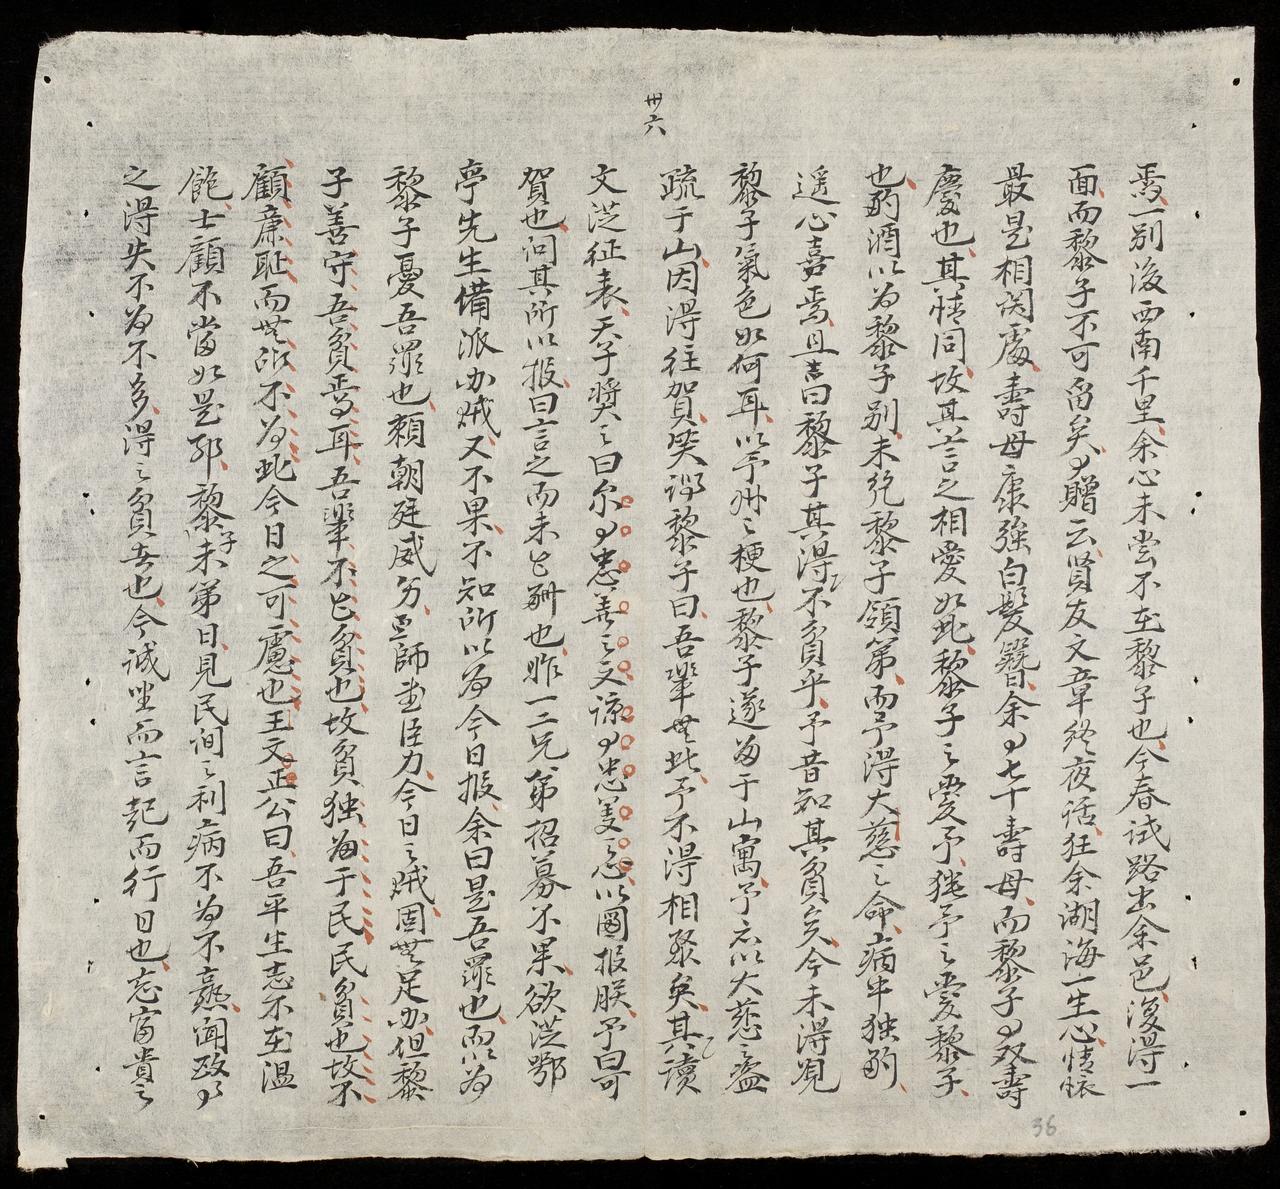 卅六
焉、一別後西南千里、余心未尝不在黎子也、今春試路出余邑、復得一
面、而黎子不可留矣、贈云、賢友文章終夜话、狂余湖海一生心、情悵
最是相関處、壽母康強白髮簪、余七十壽母、而黎子双壽
慶也、其情同、故其言之相愛如此、黎子之愛予、猶予之愛黎子
也、酌酒以为黎子別、未純、黎子領第、而予得大慈之命、病中独酌、
遥心嘉焉、且言曰、黎子其得不貧乎、予昔知其貧矣、今未得覌
黎子氣色如何耳、以予州之梗也、黎子遂为于山寓、予亦以大慈之
疏于山、因得往賀、笑謂黎子曰、吾輩世此、予不得相聚矣、其讀
文从征表、天子奨之曰、尔忠善之文諒忠善之忘、以圖报朕、予曰可
賀也、问其所以报、曰言之而未占酬也、昨一二兄弟招募不果、欲从鄂
亭先生備派办贼、又不果、不知所以为今日报、余曰是吾罪也、而以为
黎子憂、吾罪也、赖朝廷威灵、王師、臣力、今日之贼固世足办、但黎
子善守吾貧焉耳、吾輩不占貧也、故貧独为于民、民貧也、故不
顧廉耻而世所不为、此今日之可慮也、王文正公曰、吾平生志不在温
飽、士顧不當如是耶、黎子未第日、見民间之利病不为不熟、闻政
之得失不为不多、得之貧者也、今诚坐而言、起而行日也、忘富貴之
36